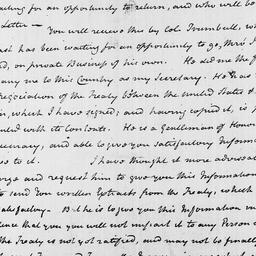 aiting for an opportunity to return, and who will be
Letter —
You will receive this by Col. Trumbull, wh
ast has been waiting for an opportunity to go, thro'
d, on private Business of his own. He did me the f
any me to this Country as my Secretary. He has
egociation of the Treaty between the united States &
in, which I have signed; and having copied it, is
inted with its Contents. He is a Gentleman of Honor
ecrecy, and able to give you satisfactory Inform
es to it. I have thought it more adviseab
orize and request him to give you this Information
to send You written Extracts from the Treaty, which
satisfactory. But he is to give you this Information in
dence that you will not impart it to any Person
the Treaty is not yet ratified, and may not be finally